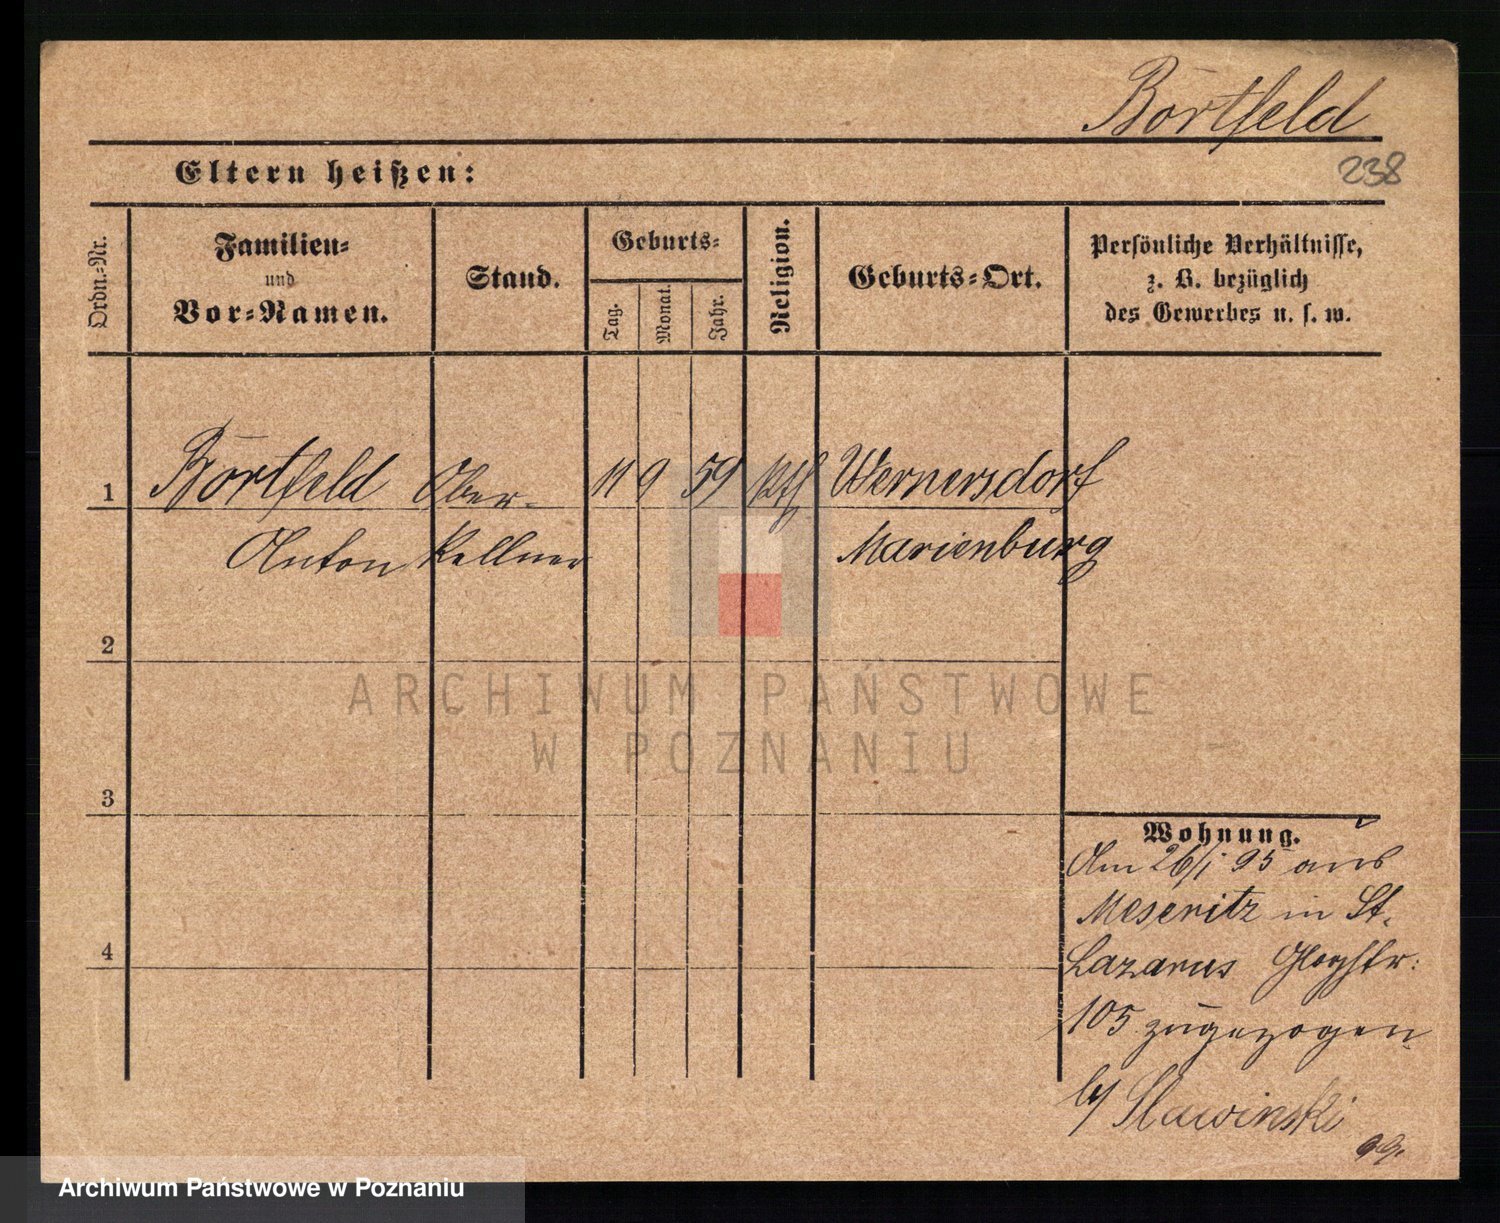 Börtfeld
238
Eltern heißen:
Ordn.-Nr.
Familien-
und
Vor-Namen.
Stand.
Geburts-
Tag.
Monat.
Jahr.
Religion.
Geburts-Ort.
Persönliche Verhältnisse,
z. B. bezüglich
des Gewerbes u. s. w.
1 Börtfeld Ober- 11 9 59 Wernersdorf
Anton Kellner Marienburg
2
3
4
ARCHIWUM PAŃSTWOWE
W POZNANIU
Wohnung.
Am 26/1 95 aus
Meseritz in St.
Lazarus
105 zugezogen
b/ Slawinski
Archiwum Państwowe w Poznaniu